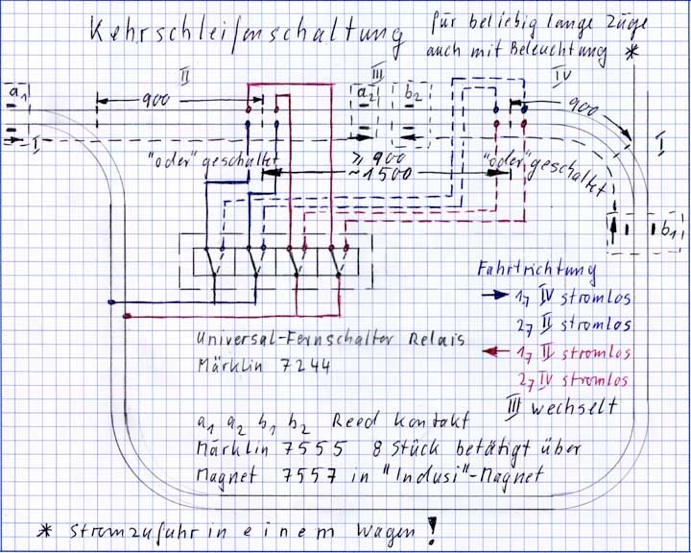 Kehrschleifenschaltung
für beliebig lange Züge
auch mit Beleuchtung *
a1 II III a2 b2 IV
900
900
I
I
"oder" geschaltet
≥ 900
~1500
"oder" geschaltet
b1
Fahrtrichtung
→ 1, IV stromlos
2, II stromlos
← 1, II stromlos
2, IV stromlos
III wechselt
Universal-Fernschalter Relais
Märklin 7244
a1 a2 b1 b2 Reed Kontakt
Märklin 7555 8 Stück betätigt über
Magnet 7557 in "Indusi"-Magnet
* Stromzufuhr in einem Wagen!